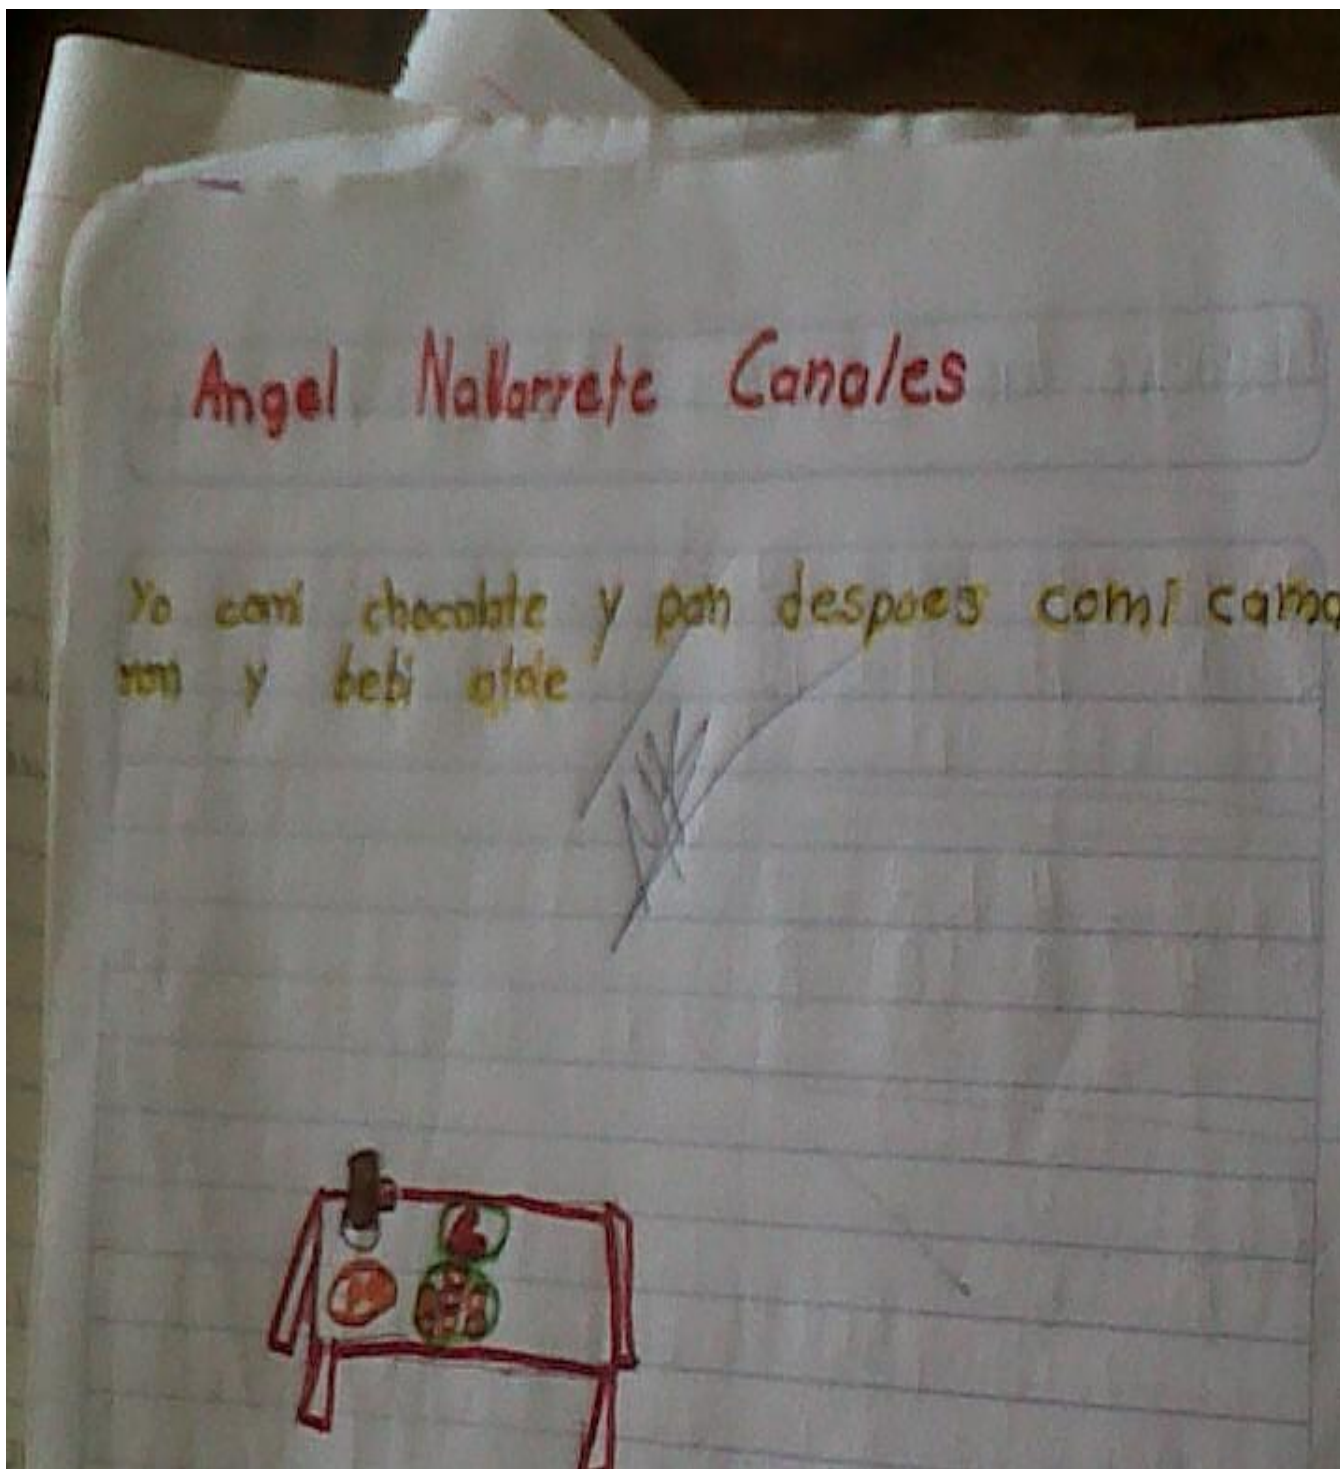 Angel Navarrete Canales
Yo comí chocolate y pan despues comí cama
ron y bebí atole